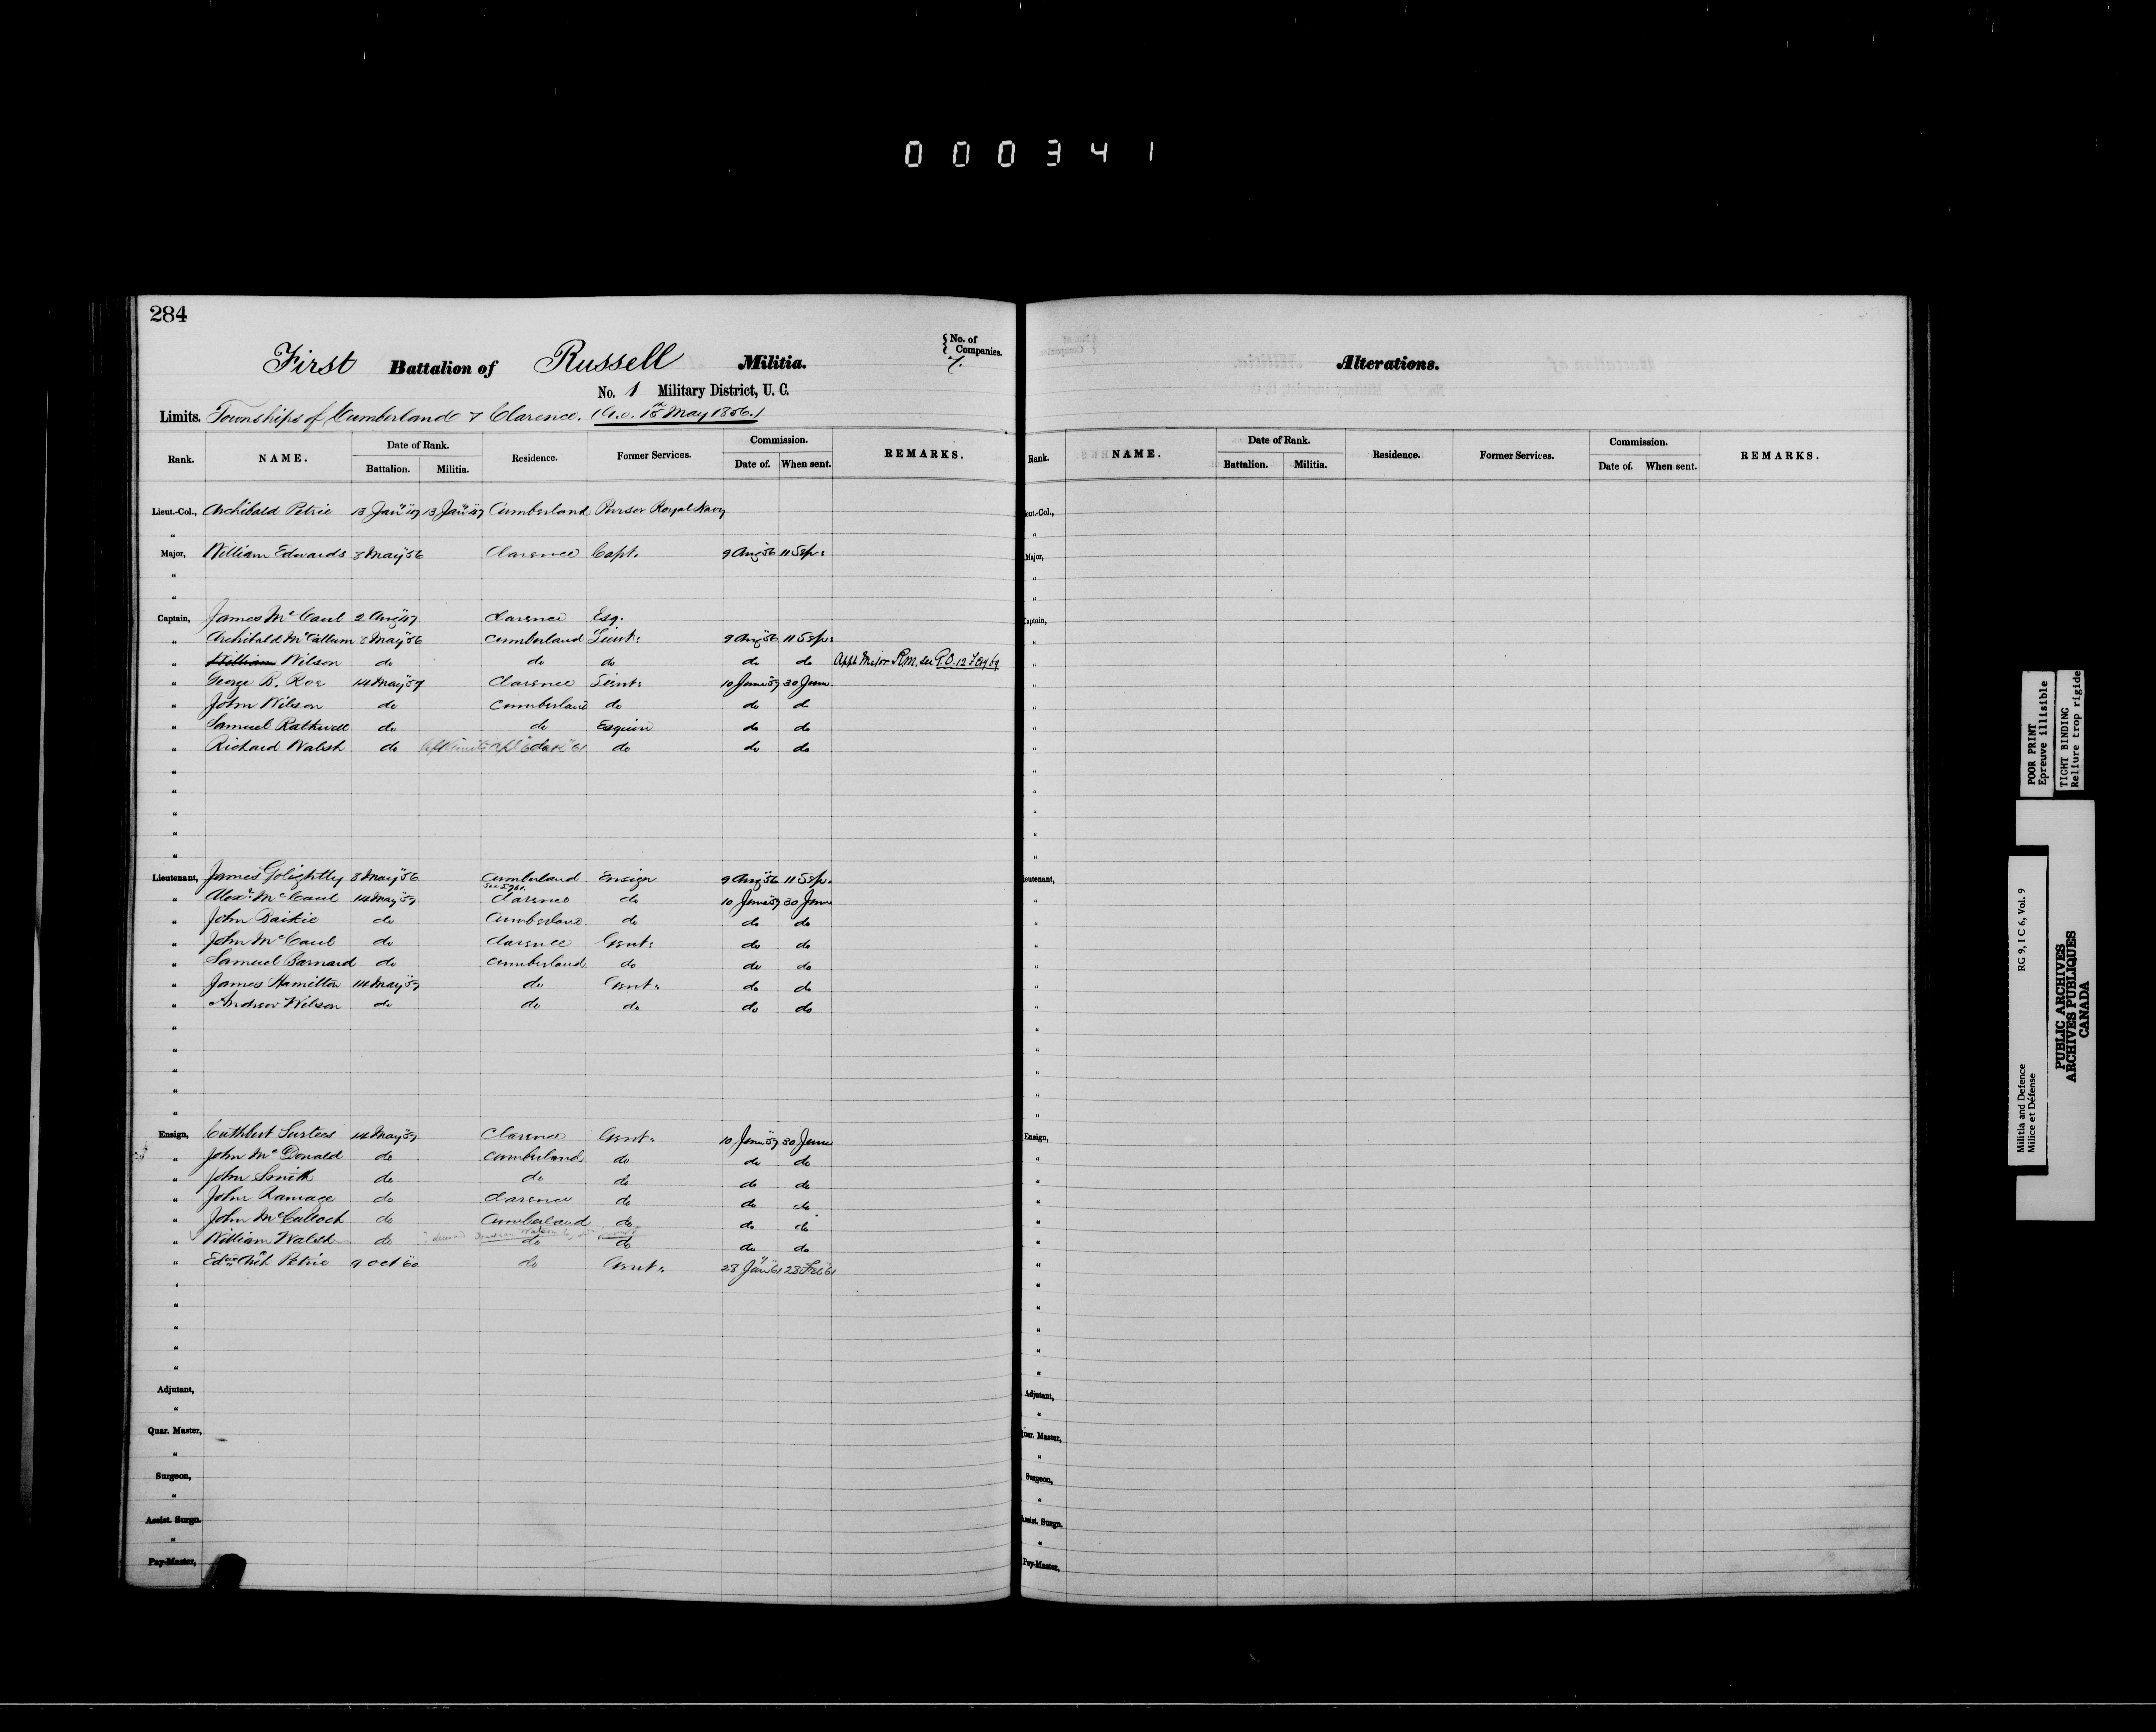 000341
284
First Battalion of Russell Militia. { No. of Companies. 7.
No. 1 Military District, U. C.
Limits. Townships of Cumberland & Clarence. (G.O. 15th May 1856.)
Rank. NAME. Date of Rank. Battalion. Militia. Residence. Former Services. Commission. Date of. When sent. REMARKS.
Lieut.-Col., Archibald Petrie 13 Jany 47 13 Jany 47 Cumberland Purser Royal Navy
"
Major, William Edwards 8 May 56 Clarence Capt. 9 Aug 56 11 Sep:
"
"
Captain, James McCaul 2 Aug 47 Clarence Esq.
" Archibald McCallum 8 May 56 Cumberland Lieut: 9 Aug 56 11 Sep:
" William Wilson do do do do do Appd Major R.M. see G.O. 12
" George B. Roe 14 May 57 Clarence Lieut: 10 June 57 30 June
" John Wilson do Cumberland do do do
" Samuel Rathwell do do Esquire do do
" Richard Walsh do do do do
"
"
"
"
"
Lieutenant, James Golightly 8 May 56 Cumberland Ensign 9 Aug 56 11 Sep.
" Alexr McCaul 14 May 57 Clarence do 10 June 57 30 June
" John Daikie do Cumberland do do do
" John McCaul do Clarence Gent: do do
" Samuel Barnard do Cumberland do do do
" James Hamilton 14 May 57 do Gent: do do
" Andrew Wilson do do do do do
"
"
"
"
"
Ensign, Cuthbert Surtees 14 May 57 Clarence Gent: 10 June 57 30 June
" John McDonald do Cumberland do do do
" John Smith do do do do do
" John Ramage do Clarence do do do
" John McCulloch do Cumberland do do do
" William Walsh do do do do do
" Edwd Arch Petrie 9 Oct 60 do Gent: 28 Jany 61 28 Feb 61
"
"
"
"
"
Adjutant,
"
Quar. Master,
"
Surgeon,
"
Assist. Surgn.
"
Pay-Master,
Alterations.
Rank. NAME. Date of Rank. Battalion. Militia. Residence. Former Services. Commission. Date of. When sent. REMARKS.
ieut.-Col.,
"
Major,
"
"
Captain,
"
"
"
"
"
"
"
"
"
"
"
ieutenant,
"
"
"
"
"
"
"
"
"
"
"
Ensign,
"
"
"
"
"
"
"
"
"
"
"
Adjutant,
"
uar. Master,
"
Surgeon,
"
Assist. Surgn.
"
Pay-Master,
POOR PRINT
Epreuve illisible
TIGHT BINDING
Reliure trop rigide
Militia and Defence
Milice et Défense
RG 9, I C 6, Vol. 9
PUBLIC ARCHIVES
ARCHIVES PUBLIQUES
CANADA